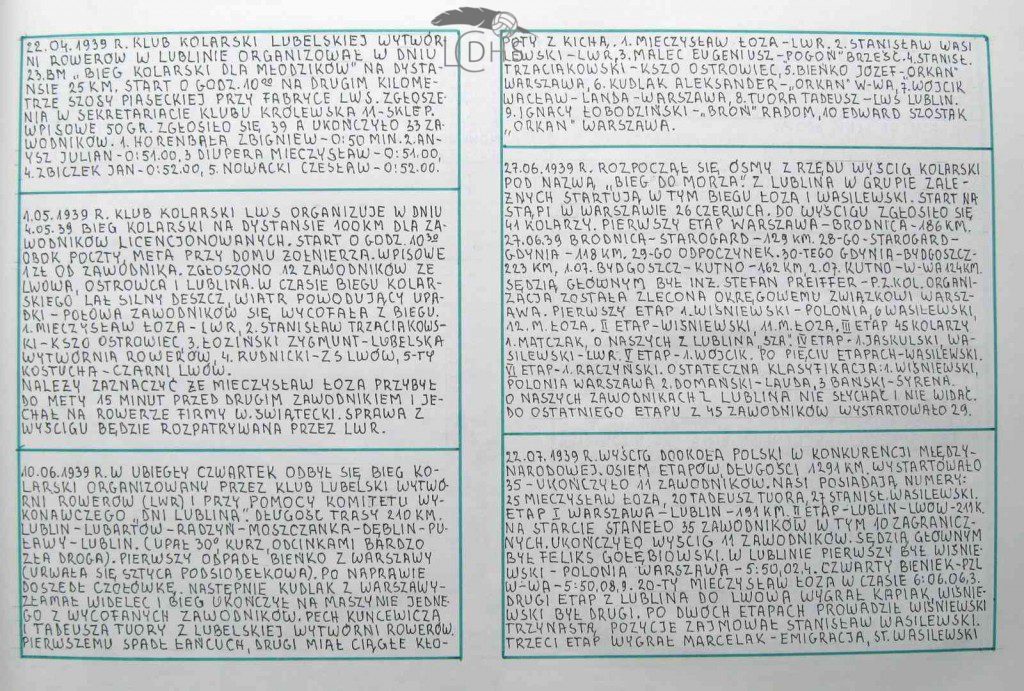 LDHS
22.04.1939 R. KLUB KOLARSKI LUBELSKIEJ WYTWÓR-
NI ROWERÓW W LUBLINIE ORGANIZOWAŁ W DNIU
23.BM „BIEG KOLARSKI DLA MŁODZIKÓW” NA DYSTA-
NSIE 25 KM. START O GODZ. 10⁰⁰ NA DRUGIM KILOME-
TRZE SZOSY PIASECKIEJ PRZY FABRYCE LWS. ZGŁOSZE-
NIA W SEKRETARIACIE KLUBU KRÓLEWSKA 11-SKLEP.
WPISOWE 50 GR. ZGŁOSIŁO SIĘ 39 A UKOŃCZYŁO 33 ZA-
WODNIKÓW. 1. HORENBAŁA ZBIGNIEW-0:50 MIN. 2. AN-
YSZ JULIAN-0:51.00, 3 DIUPERA MIECZYSŁAW-0:51.00,
4. ZBICZEK JAN-0:52.00, 5. NOWACKI CZESŁAW-0:52.00.
1.05.1939 R. KLUB KOLARSKI LWS ORGANIZUJE W DNIU
4.05.39 BIEG KOLARSKI NA DYSTANSIE 100KM DLA ZA-
WODNIKÓW LICENCJONOWANYCH. START O GODZ. 10³⁰
OBOK POCZTY, META PRZY DOMU ŻOŁNIERZA. WPISOWE
1 ZŁ OD ZAWODNIKA. ZGŁOSZONO 12 ZAWODNIKÓW ZE
LWOWA, OSTROWCA I LUBLINA. W CZASIE BIEGU KOLAR-
SKIEGO LAŁ SILNY DESZCZ, WIATR POWODUJĄCY UPA-
DKI-POŁOWA ZAWODNIKÓW SIĘ WYCOFAŁA Z BIEGU.
1. MIECZYSŁAW ŁOZA-LWR, 2. STANISŁAW TRZACIAKOWS-
KI-KSZO OSTROWIEC, 3. ŁOZIŃSKI ZYGMUNT-LUBELSKA
WYTWÓRNIA ROWERÓW, 4. RUDNICKI-ZS LWÓW, 5-TY
KOSTUCHA-CZARNI LWÓW.
NALEŻY ZAZNACZYĆ ŻE MIECZYSŁAW ŁOZA PRZYBYŁ
DO METY 15 MINUT PRZED DRUGIM ZAWODNIKIEM I JE-
CHAŁ NA ROWERZE FIRMY W. ŚWIĄTECKI. SPRAWA Z
WYŚCIGU BĘDZIE ROZPATRYWANA PRZEZ LWR.
10.06.1939 R. W UBIEGŁY CZWARTEK ODBYŁ SIĘ BIEG KO-
LARSKI ORGANIZOWANY PRZEZ KLUB LUBELSKI WYTWÓ-
RNI ROWERÓW (LWR) I PRZY POMOCY KOMITETU WY-
KONAWCZEGO „DNI LUBLINA”. DŁUGOŚĆ TRASY 210 KM.
LUBLIN-LUBARTÓW-RADZYŃ-MOSZCZANKA-DĘBLIN-PU-
ŁAWY-LUBLIN. (UPAŁ 30° KURZ, ODCINKAMI BARDZO
ZŁA DROGA). PIERWSZY ODPADŁ BIEŃKO Z WARSZAWY
(URWAŁA SIĘ SZTYCA PODSIODEŁKOWA). PO NAPRAWIE
DOSZEDŁ CZOŁÓWKĘ. NASTĘPNIE KUDLAK Z WARSZAWY-
ZŁAMAŁ WIDELEC I BIEG UKOŃCZYŁ NA MASZYNIE JEDNE-
GO Z WYCOFANYCH ZAWODNIKÓW. PECH KUNCEWICZA
I TADEUSZA TUORY Z LUBELSKIEJ WYTWÓRNI ROWERÓW.
PIERWSZEMU SPADŁ ŁAŃCUCH, DRUGI MIAŁ CIĄGŁE KŁO-
POTY Z KICHĄ. 1. MIECZYSŁAW ŁOZA-LWR. 2. STANISŁAW WASI
LEWSKI-LWR, 3. MALEC EUGENIUSZ-„POGOŃ” BRZEŚĆ. 4. STANISŁ.
TRZACIAKOWSKI-KSZO OSTROWIEC, 5. BIEŃKO JÓZEF-„ORKAN”
WARSZAWA, 6. KUDLAK ALEKSANDER-„ORKAN” W-WA, 7. WÓJCIK
WACŁAW-LANDA-WARSZAWA, 8. TUORA TADEUSZ-LWS LUBLIN.
9. IGNACY ŁOBODZIŃSKI-„BROŃ” RADOM, 10 EDWARD SZOSTAK
„ORKAN” WARSZAWA.
27.06.1939 R. ROZPOCZĄŁ SIĘ ÓSMY Z RZĘDU WYŚCIG KOLARSKI
POD NAZWĄ „BIEG DO MORZA”. Z LUBLINA W GRUPIE ZALE-
ŻNYCH STARTUJĄ W TYM BIEGU ŁOZA I WASILEWSKI. START NA
STĄPI W WARSZAWIE 26 CZERWCA. DO WYŚCIGU ZGŁOSIŁO SIĘ
41 KOLARZY. PIERWSZY ETAP WARSZAWA-BRODNICA-186 KM.
27.06.39 BRODNICA-STAROGARD-129 KM. 28-GO-STAROGARD-
GDYNIA-118 KM. 29-GO ODPOCZYNEK. 30-TEGO GDYNIA-BYDGOSZCZ-
223 KM, 1.07. BYDGOSZCZ-KUTNO-162 KM, 2.07. KUTNO-W-WA 124KM.
SĘDZIĄ GŁÓWNYM BYŁ INŻ. STEFAN PREIFFER-P.Z.KOL. ORGANI-
ZACJA ZOSTAŁA ZLECONA OKRĘGOWEMU ZWIĄZKOWI WARSZ-
AWA. PIERWSZY ETAP 1. WIŚNIEWSKI-POLONIA, 6 WASILEWSKI,
12. M. ŁOZA. II ETAP-WIŚNIEWSKI, 11. M. ŁOZA. III ETAP 45 KOLARZY
1. MATCZAK, O NASZYCH Z LUBLINA „SZA”. IV ETAP-1. JASKULSKI, WA-
SILEWSKI-LWR. V ETAP-1. WÓJCIK. PO PIĘCIU ETAPACH-WASILEWSKI.
VI ETAP-1. RACZYŃSKI. OSTATECZNA KLASYFIKACJA: 1. WIŚNIEWSKI,
POLONIA WARSZAWA 2. DOMAŃSKI-LAUDA, 3 BAŃSKI-SYRENA.
O NASZYCH ZAWODNIKACH Z LUBLINA NIE SŁYCHAĆ I NIE WIDAĆ.
DO OSTATNIEGO ETAPU Z 45 ZAWODNIKÓW WYSTARTOWAŁO 29.
22.07.1939 R. WYŚCIG DOOKOŁA POLSKI W KONKURENCJI MIĘDZY-
NARODOWEJ. OSIEM ETAPÓW, DŁUGOŚCI 1291 KM, WYSTARTOWAŁO
35-UKOŃCZYŁO 11 ZAWODNIKÓW. NASI POSIADAJĄ NUMERY:
25 MIECZYSŁAW ŁOZA, 20 TADEUSZ TUORA, 27 STANISŁ. WASILEWSKI.
ETAP I WARSZAWA-LUBLIN-191 KM. II ETAP-LUBLIN-LWÓW-211K.
NA STARCIE STANĘŁO 35 ZAWODNIKÓW W TYM 10 ZAGRANICZ-
NYCH. UKOŃCZYŁO WYŚCIG 11 ZAWODNIKÓW. SĘDZIĄ GŁÓWNYM
BYŁ FELIKS GOŁĘBIOWSKI. W LUBLINIE PIERWSZY BYŁ WIŚNIE-
WSKI-POLONIA WARSZAWA-5:50,02,4. CZWARTY BIENIEK-PZL
W-WA-5:50,08,9. 20-TY MIECZYSŁAW ŁOZA W CZASIE 6:06.06,3.
DRUGI ETAP Z LUBLINA DO LWOWA WYGRAŁ KAPIAK, WIŚNIE-
WSKI BYŁ DRUGI. PO DWÓCH ETAPACH PROWADZIŁ WIŚNIEWSKI
TRZYNASTĄ POZYCJĘ ZAJMOWAŁ STANISŁAW WASILEWSKI.
TRZECI ETAP WYGRAŁ MARCELAK-EMIGRACJA, ST. WASILEWSKI